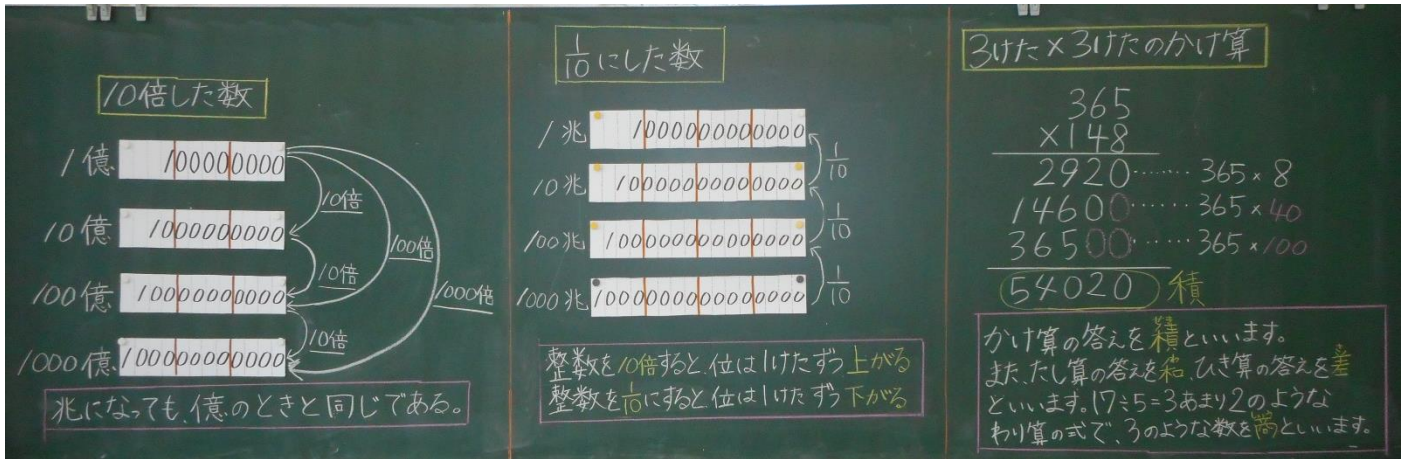 10倍した数
1億 100000000
10億 1000000000
100億 10000000000
1000億 100000000000
10倍
10倍
10倍
100倍
1000倍
兆になっても、億のときと同じである。
1/10にした数
1兆 1000000000000
10兆 10000000000000
100兆 100000000000000
1000兆 1000000000000000
1/10
1/10
1/10
整数を10倍すると、位は1けたずつ上がる
整数を1/10にすると位は1けたずつ下がる
3けた×3けたのかけ算
365
×148
2920……365×8
14600……365×40
36500……365×100
54020 積
かけ算の答えを積といいます。
また、たし算の答えを和、ひき算の答えを差
といいます。17÷5=3あまり2のような
わり算の式で、3のような数を商といいます。